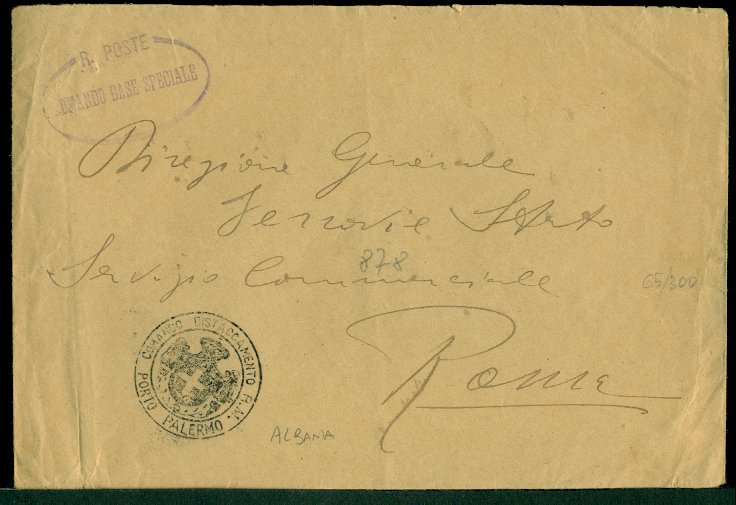 R. POSTE
COMANDO BASE SPECIALE
Direzione Generale
Ferrovie Stato
878
Servizio Commerciale
65/300
Roma
COMANDO DISTACCAMENTO R.M.
PORTO PALERMO
ALBANIA